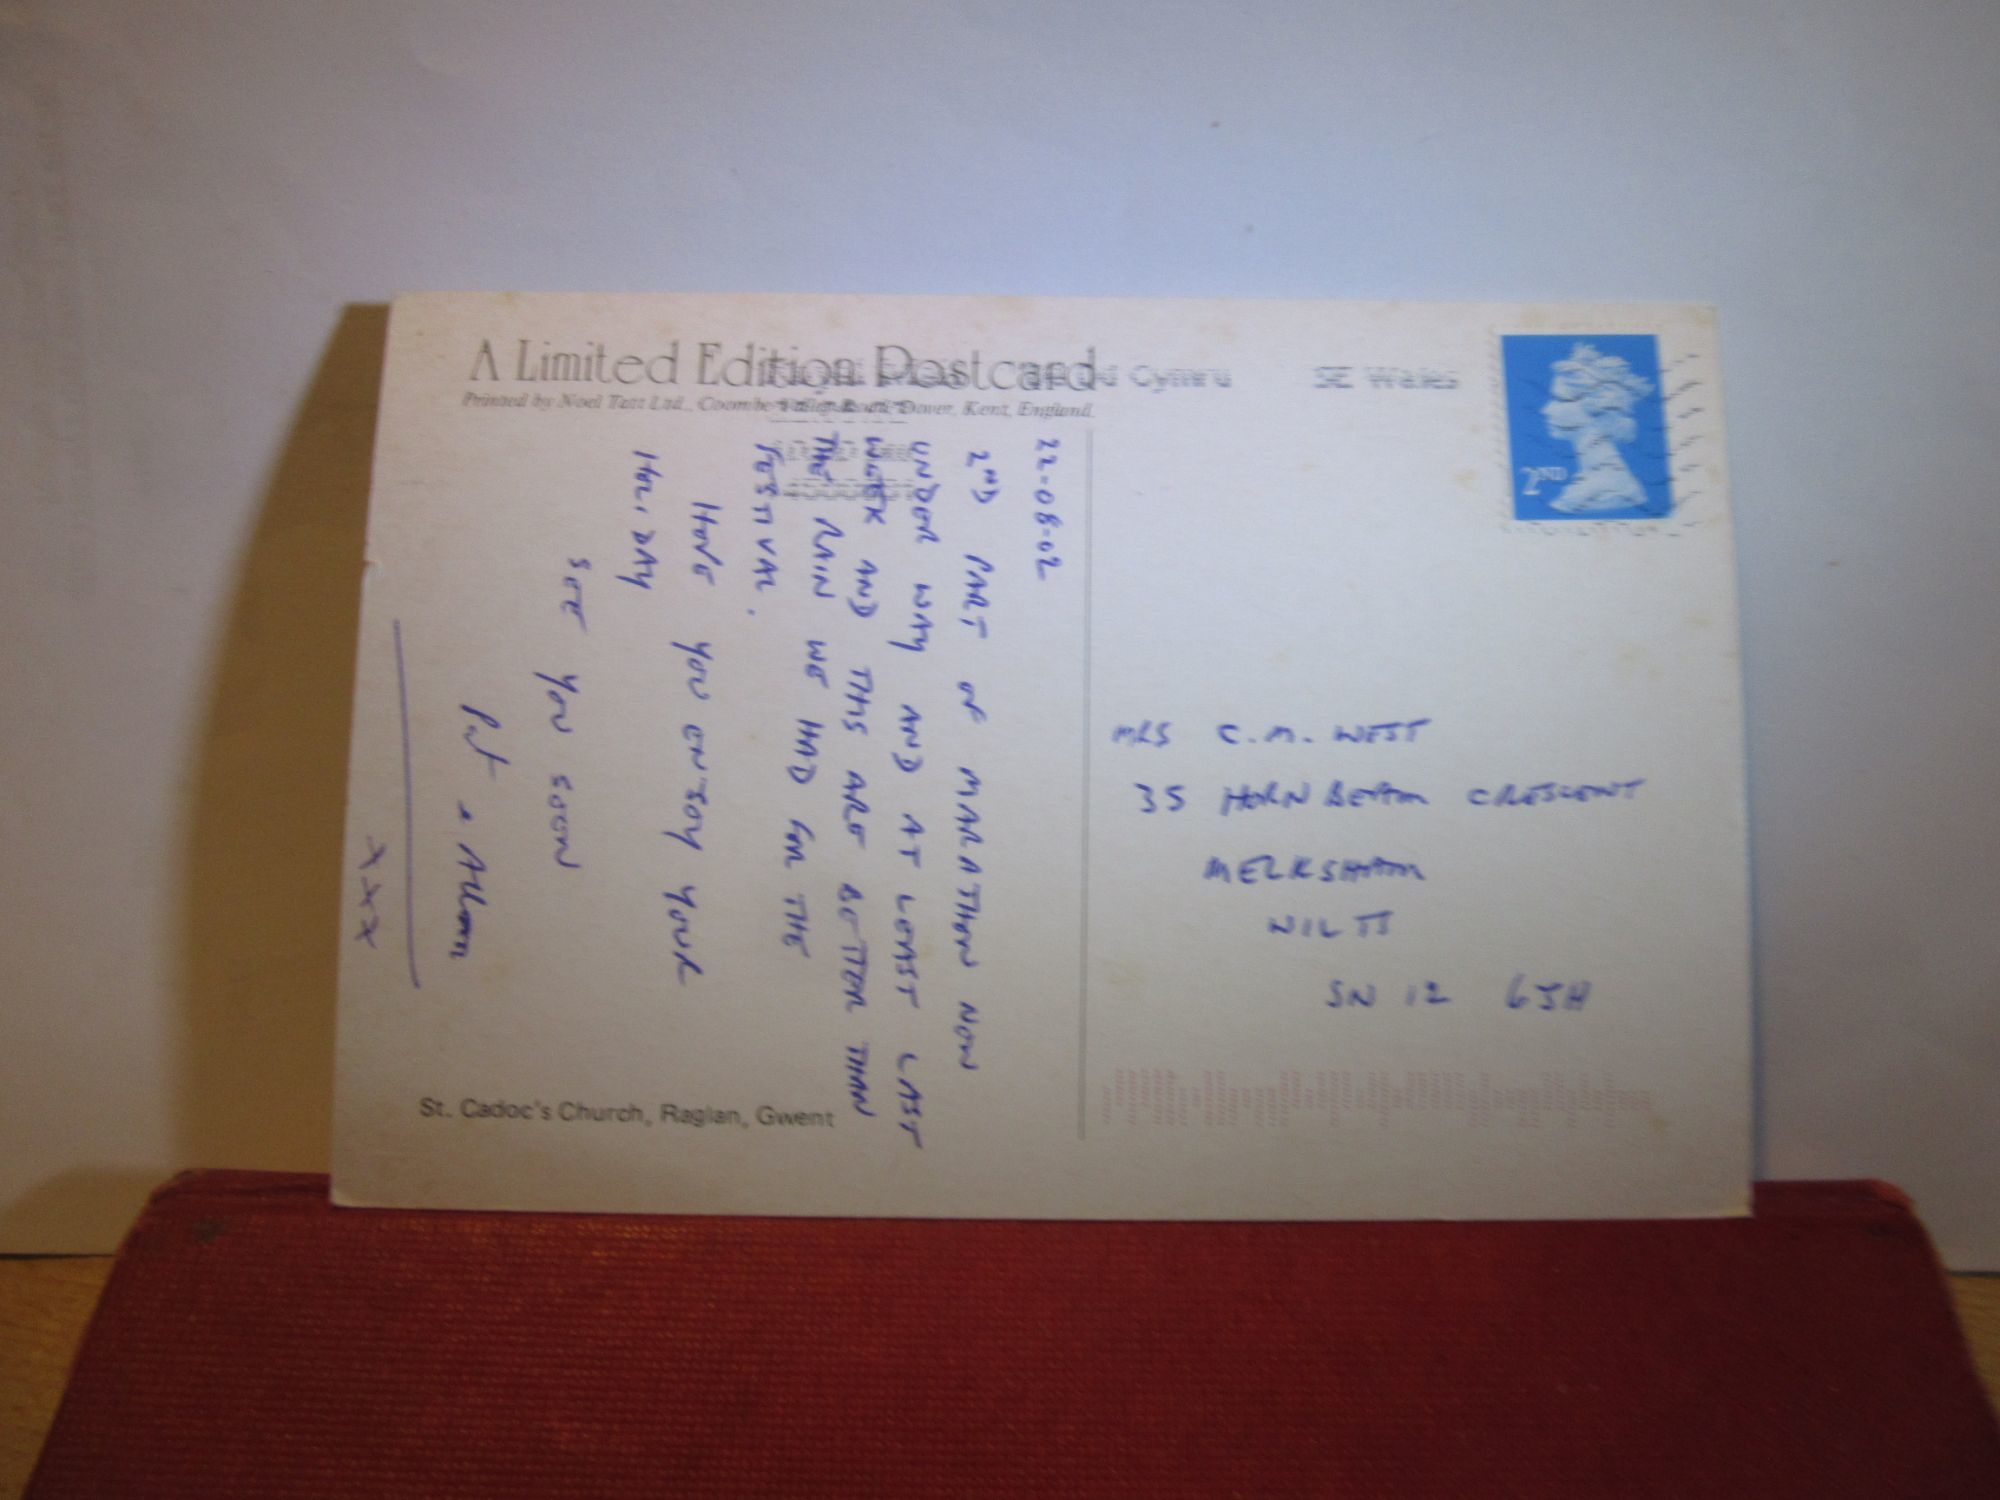 A Limited Edition Postcard
Printed by Noel Tatt Ltd., Coombe Valley Road, Dover, Kent, England.
Cymru SE Wales
2ND
22-08-02
2ND PART OF MARATHON NOW
UNDER WAY AND AT LEAST LAST
WEEK AND THIS ARE BETTER THAN
THE RAIN WE HAD FOR THE
FESTIVAL.
HOPE YOU ENJOY YOUR
HOLIDAY
SEE YOU SOON
Pat &
XXX
MRS C.M. WEST
35 HORNBEAM CRESCENT
MELKSHAM
WILTS
SN12 6JH
St. Cadoc's Church, Raglan, Gwent